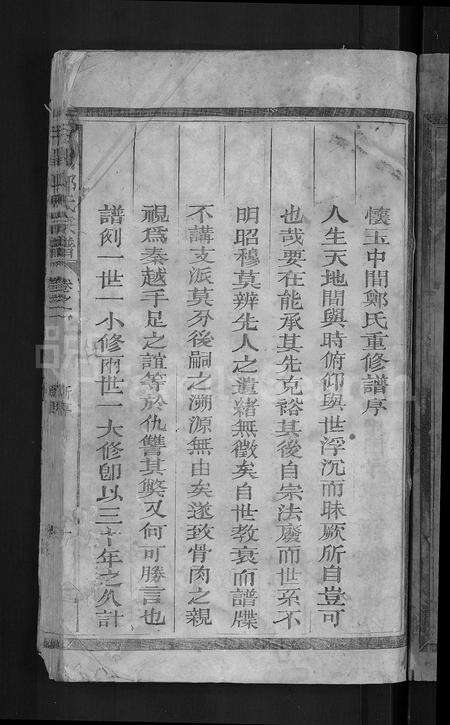 懷玉中閶鄭氏重修譜序
人生天地間與時俯仰與世浮沉而昧厥所自豈可
也哉要在能承其先克裕其後自宗法廢而世系不
明昭穆莫辨先人之遺緒無徵矣自世教衰而譜牒
不講支派莫分後嗣之溯源無由矣遂致骨肉之親
視爲秦越手足之誼等於仇讐其弊又何可勝言也
譜例一世一小修兩世一大修卽以三十年之久計
鄭氏宗譜
卷之一